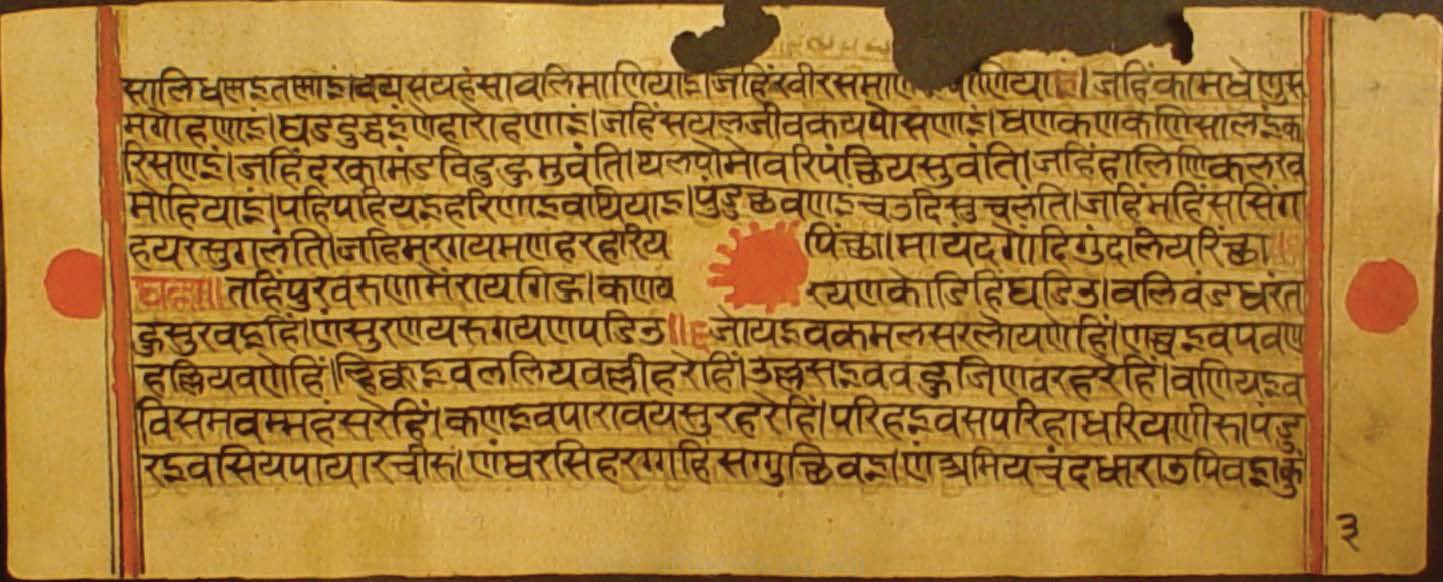 सालिधणइतणाइं।वयसयहंसावलिमाणियाइ।जहिंखीरसमाण पाणियाइं।जहिंकामधेणुस
मगोहणाइं।घडदुद्धइंणेहारोहणाइं।जहिंसयलजीवकयपोसणाइं।घणकणकणिसालइंक
रिसणाइं।जहिंदरकामंडविदुहुमुवंति।थलपोमोवरिपंथियसुवंति।जहिंहालिणिकलरव
मोहियाइं।पहिपहियइहरिणाइवाथियाइ।पुंडुच्छवणाइंचउदिसुचलंति।जहिंमहिंससिंग
हयरसुगलंति।जहिमरगयमणहरहारिय पिंच्छा।मायंदगोंदिगुंदलियरिंच्छा॥
घत्ता॥तहिंपुरवरुणामेंरायगिहु।कणय रयणकोडिहिंघडिउ।वलिवंडधरंत
हुसुरवइहिं।णंसुरणयरुगयणपडिउ॥६जोयइवकमलसरलोयणेहिं।णच्चइवपवण
हल्लियवणेहिं।ल्हिक्कइवललियवल्लीहरेहिं।उल्लसइववहुजिणवरहरेहिं।वणियइव
विसमवम्महंसरेहिं।कणइवपारावयसुरहरेहिं।परिहइवसपरिहाधरियणीरु।पंगु
रइवसियपायारचीरु।णंघरसिहरग्गहिसग्गुच्छिवइ।णंअमियचंदधाराउपिवइ।कुं
३